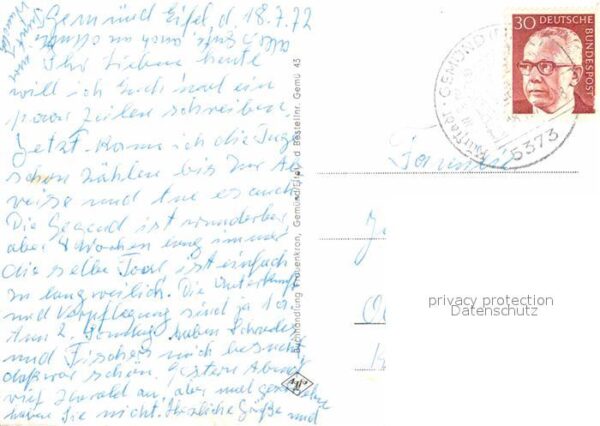 Gemünd Eifel d. 18.7.72
Ihr Lieben heute
will ich Euch mal ein
paar Zeilen schreiben.
Jetzt kann ich die Tage
schon zählen bis zur Ab
reise und tue es auch.
Die Gegend ist wunderbar
aber 4 Wochen lang immer
die selbe Tour ist einfach
zu langweilich. Die Unterkunft
und Verpflegung sind ja
Am 2. Sonntag haben Schrader
und Fischers mich besucht
daß war schön. Gestern Abend
rief Harald an, aber mal geschrieben
haben Sie nicht. Herzliche Grüße und
Buchhandlung Frauenkron, Gemünd/Eifel d Bestellnr. Gemü 45
30 DEUTSCHE
BUNDESPOST
GEMÜND
5373
Familie
privacy protection
Datenschutz